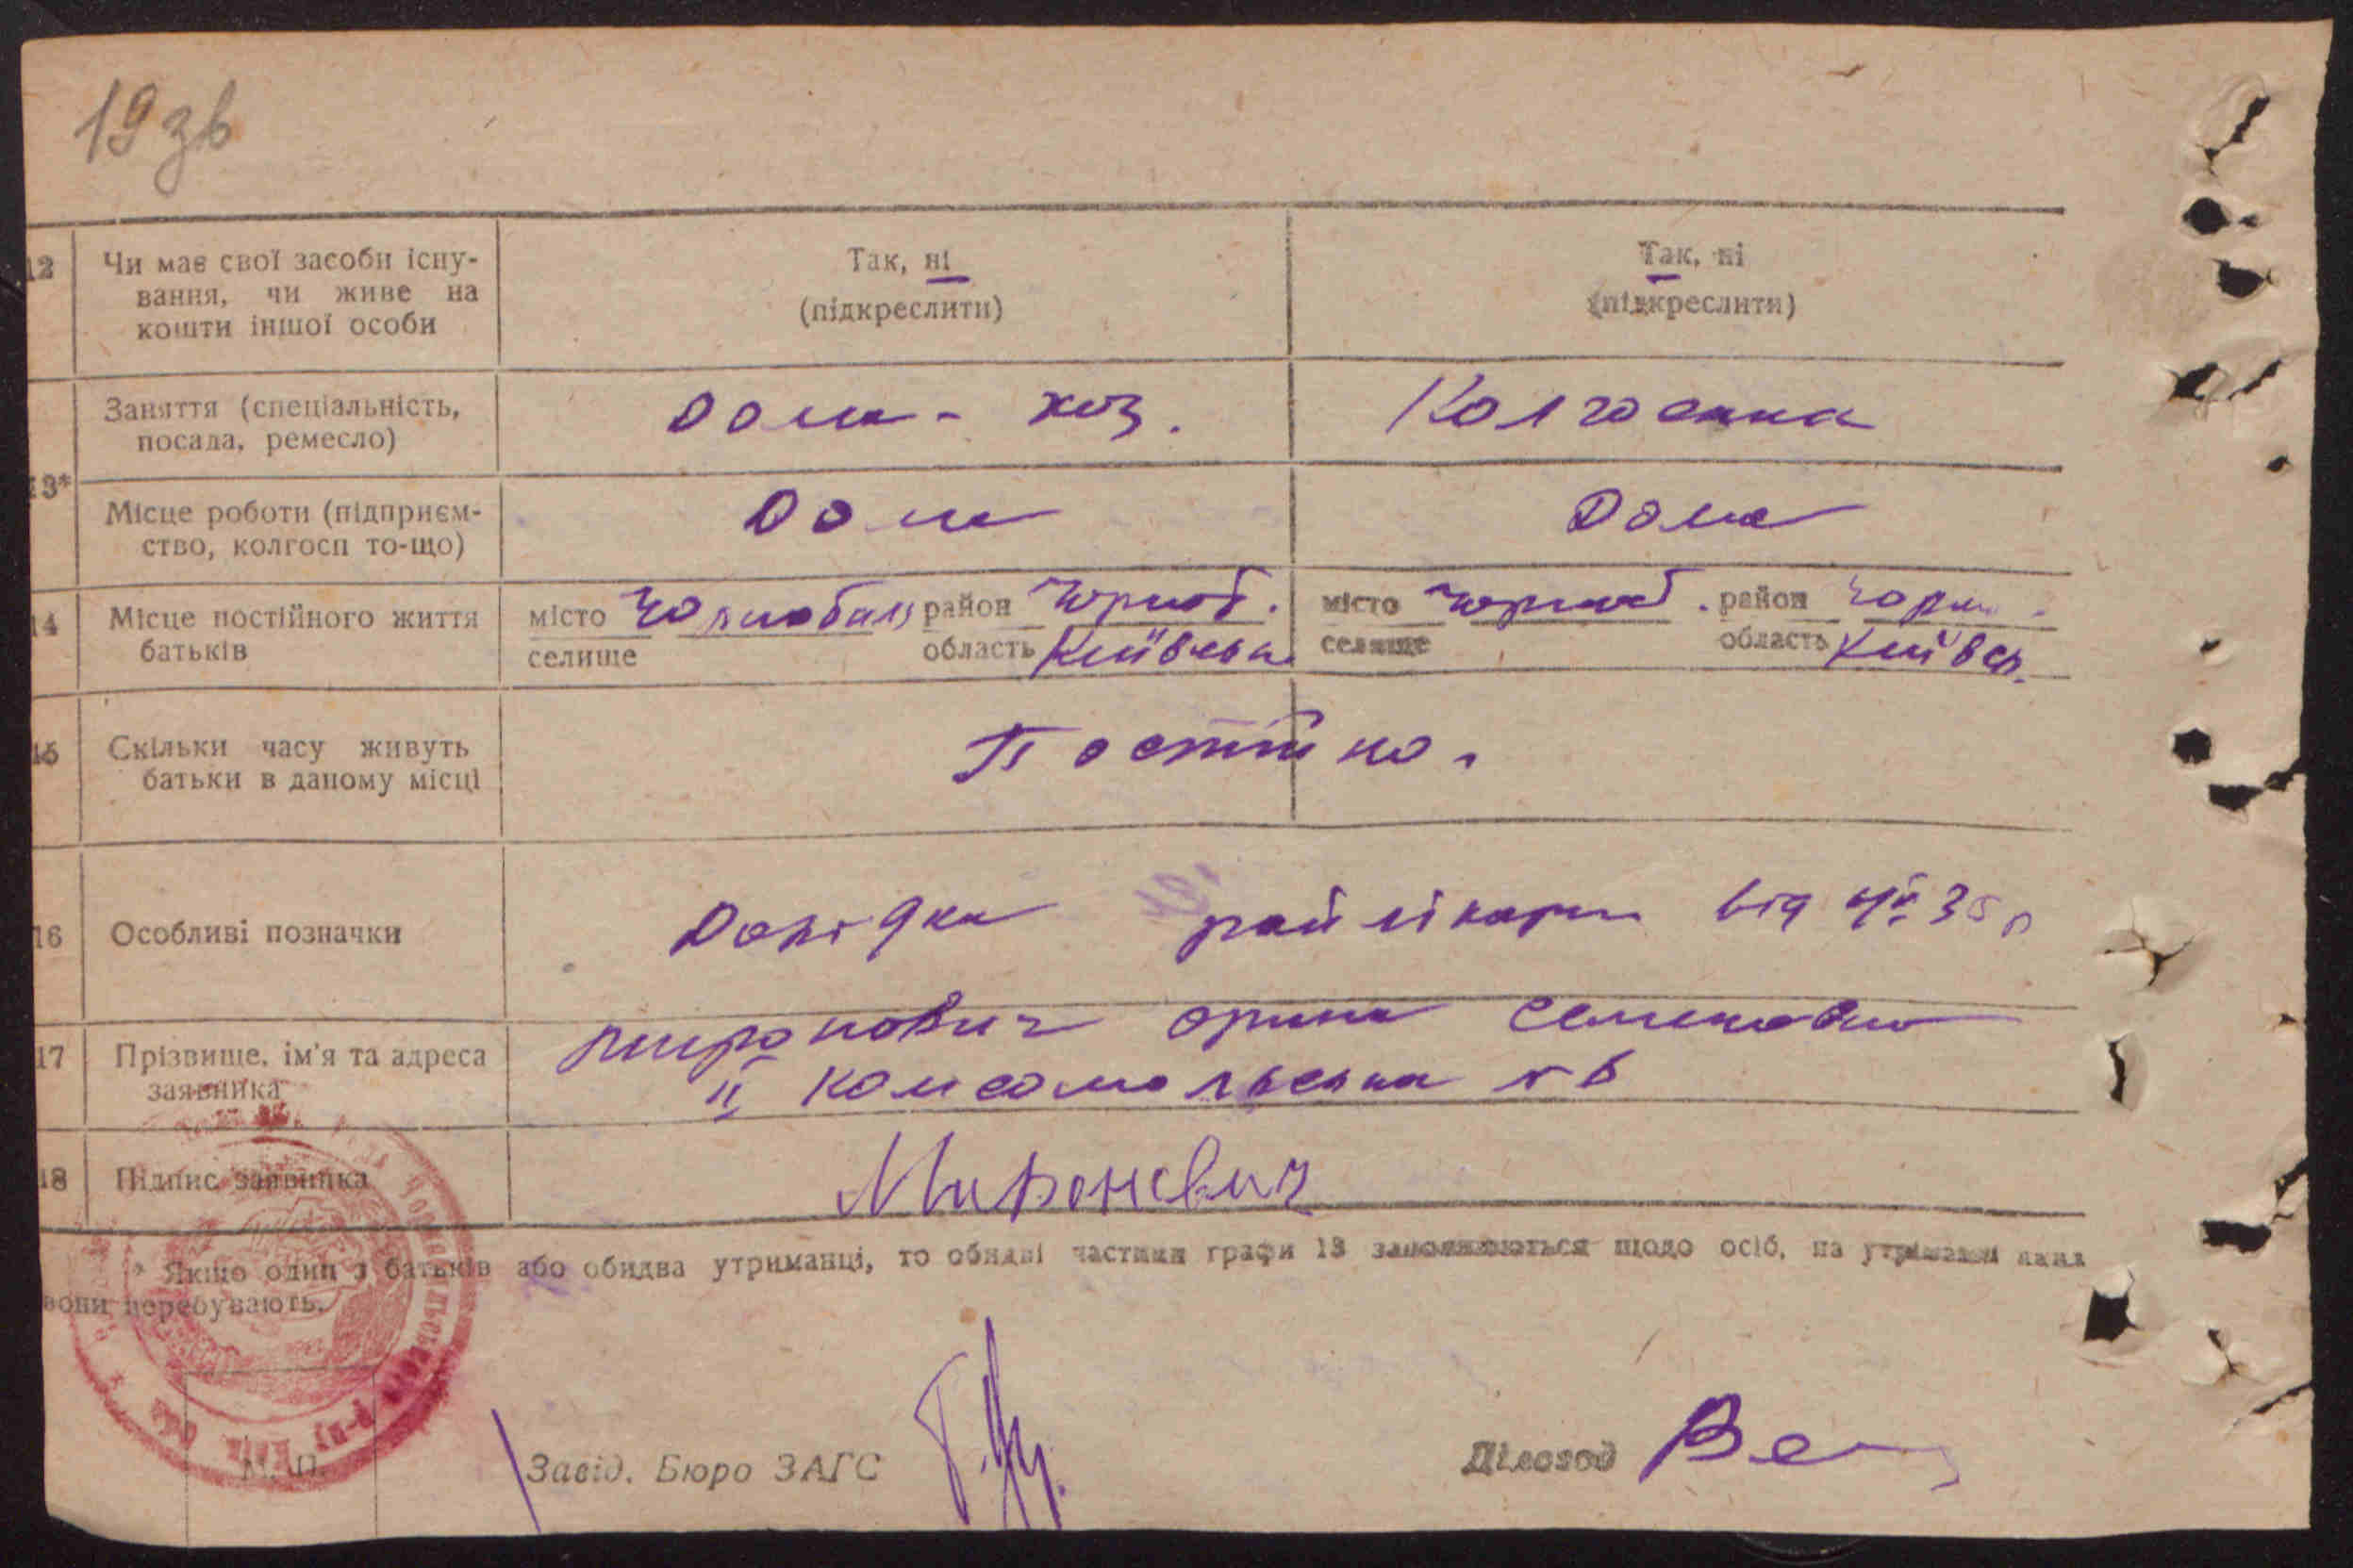 19 зв
12 Чи має свої засоби існу-
вання, чи живе на
кошти іншої особи
Так, ні
(підкреслити)
Так, ні
(підкреслити)
13*
Заняття (спеціальність,
посада, ремесло)
Дома - хоз.
Колгоспна
Місце роботи (підприєм-
ство, колгосп то-що)
Дома
Дома
14 Місце постійного життя
батьків
місто Чорнобиль район Чорноб.
селище область Київська
місто Чорноб. район Чорн.
селище область Київськ.
15 Скільки часу живуть
батьки в даному місці
Постійно.
16 Особливі позначки
Довідка райлікаря від 35 р
17 Прізвище, ім'я та адреса
заявника
Миронович Орина Семеновна
II Комсомольська № 6
18 Підпис заявника
Миронович
* Якщо один з батьків або обидва утриманці, то обидві частини графи 13 заповнюються щодо осіб, на утриманні яких
вони перебувають.
М. П.
Завід. Бюро ЗАГС
Діловод